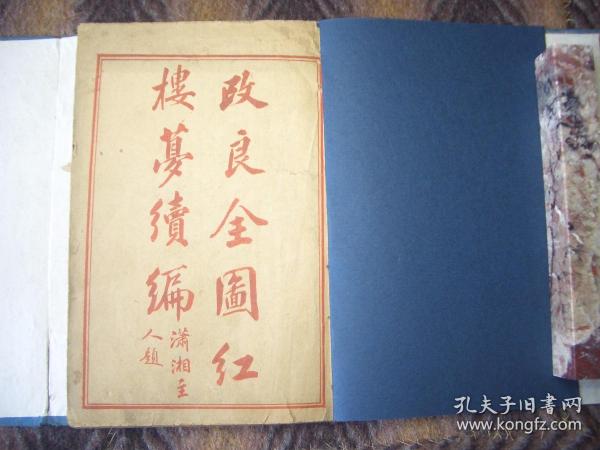 改良全圖紅
樓夢續編
瀟湘主
人題
孔夫子旧書网
www.kongfz.com